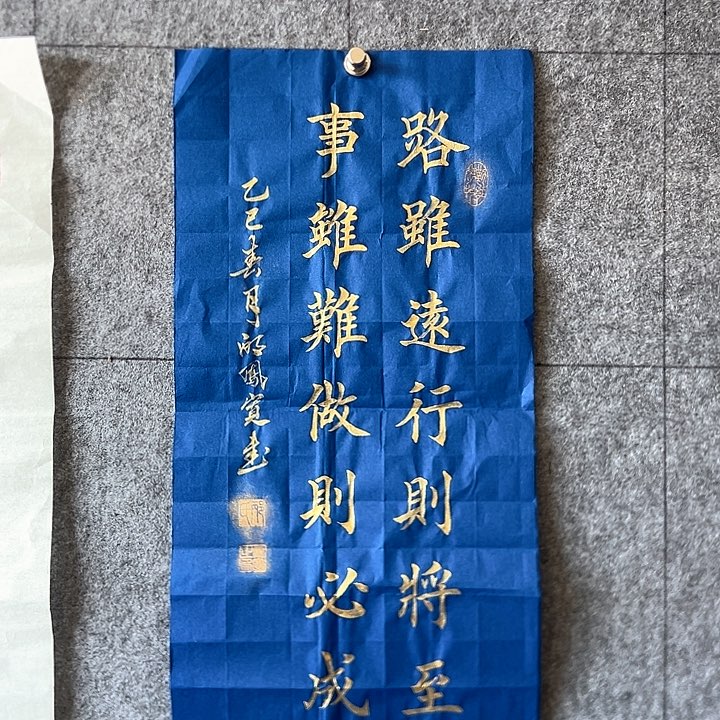 路雖遠行則將至
事雖難做則必成
乙巳春月 鳳寶書